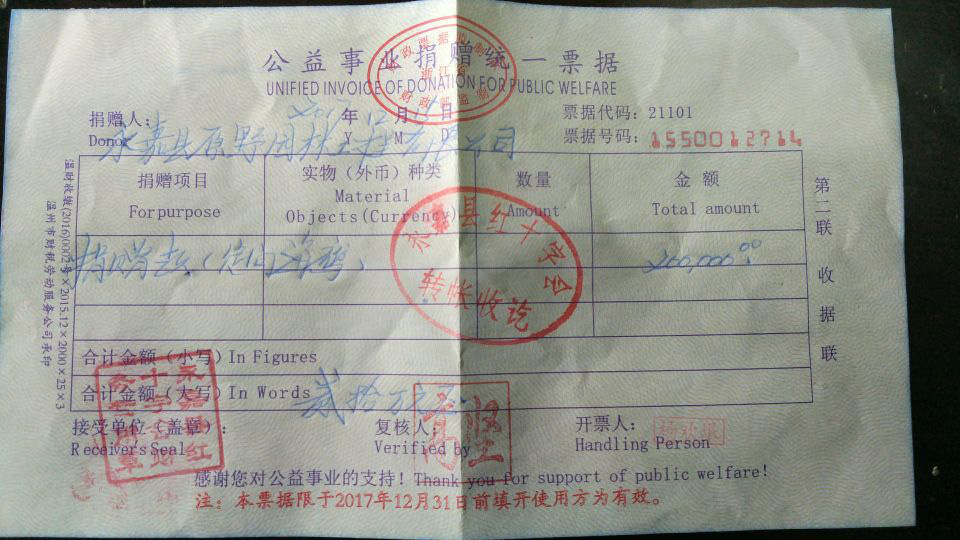 公益事业捐赠统一票据
UNIFIED INVOICE OF DONATION FOR PUBLIC WELFARE
浙江省
财政部监制
捐赠人： 2017年12月 日 票据代码：21101
Donor Y M D 票据号码：1550012714
永嘉县原野园林 有限公司
捐赠项目 实物（外币）种类 数量 金额
For purpose Material Objects(Currency) Amount Total amount
捐赠 200,000.00
永嘉县红十字会
转帐收讫
合计金额（小写）In Figures
合计金额（大写）In Words 贰拾万
接受单位（盖章）： 复核人： 开票人：
Receivers Seal Verified by Handling Person
感谢您对公益事业的支持！Thank you for support of public welfare!
注：本票据限于2017年12月31日前填开使用方为有效。
第二联 收据联
温财收缴(2016)0002号×2015.12×2000×25×3
温州市财税劳动服务公司承印